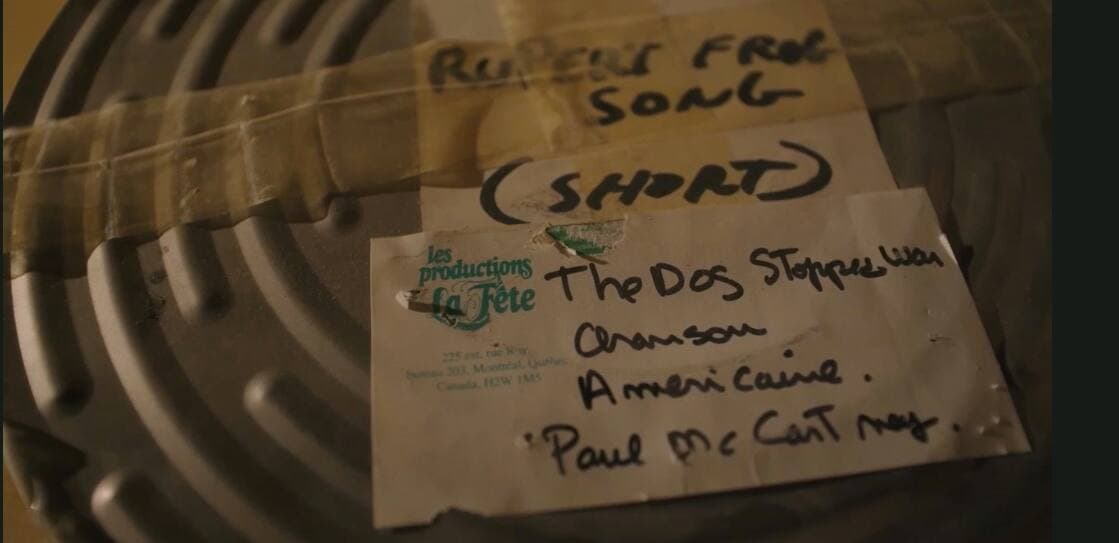 RUPERT FROG
SONG
(SHORT)
les
productions
La Fête
225 est, rue Roy
bureau 203, Montréal, Québec
Canada, H2W 1M5
The Dog Stopped War
Chanson
Americaine.
Paul McCartney.